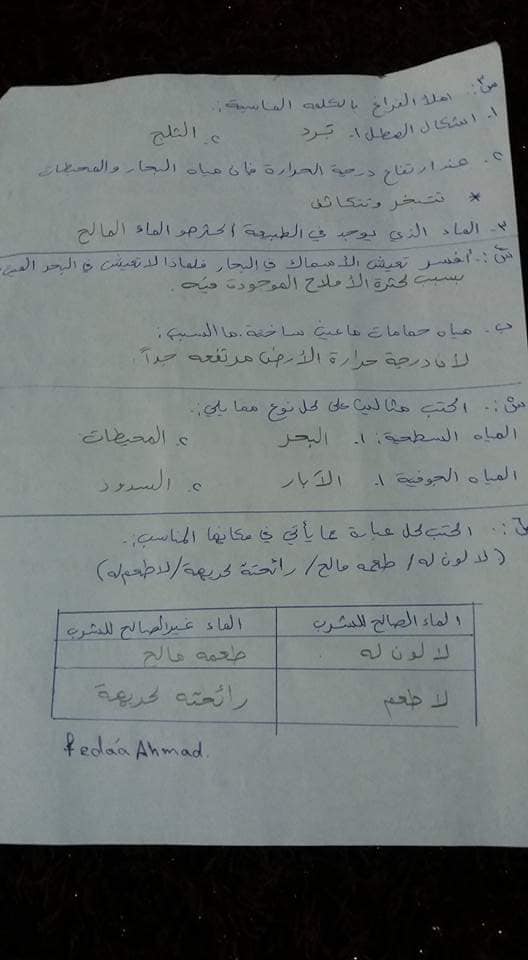 س٣:. املأ الفراغ بالكلمة المناسبة:.
١. اشكال الهطل ١. برد ٢. الثلج
٢. عند ارتفاع درجة الحرارة فان مياه البحار والمحيطات
* تتبخر وتتكاثف
٣. الماء الذي يوجد في الطبيعة اكثر هو الماء المالح
س٤:. أفسر تعيش الأسماك في البحار فلماذا لا تعيش في البحر الميت
بسبب كثرة الأملاح الموجودة فيه.
ب. مياه حمامات ماعين ساخنة. ما السبب:
لأن درجة حرارة الأرض مرتفعه جداً.
س٥:. اكتب مثاليين على كل نوع مما يلي:.
المياه السطحية: ١. البحر ٢. المحيطات
المياه الجوفية ١. الآبار ٢. السدود
س٦:. اكتب كل عبارة مما يأتي في مكانها المناسب:.
(لا لون له / طعمه مالح / رائحتة كريهة / لا طعم له)
الماء الصالح للشرب الماء غير الصالح للشرب
لا لون له طعمه مالح
لا طعم رائحته كريهة
fedáa Ahmad.